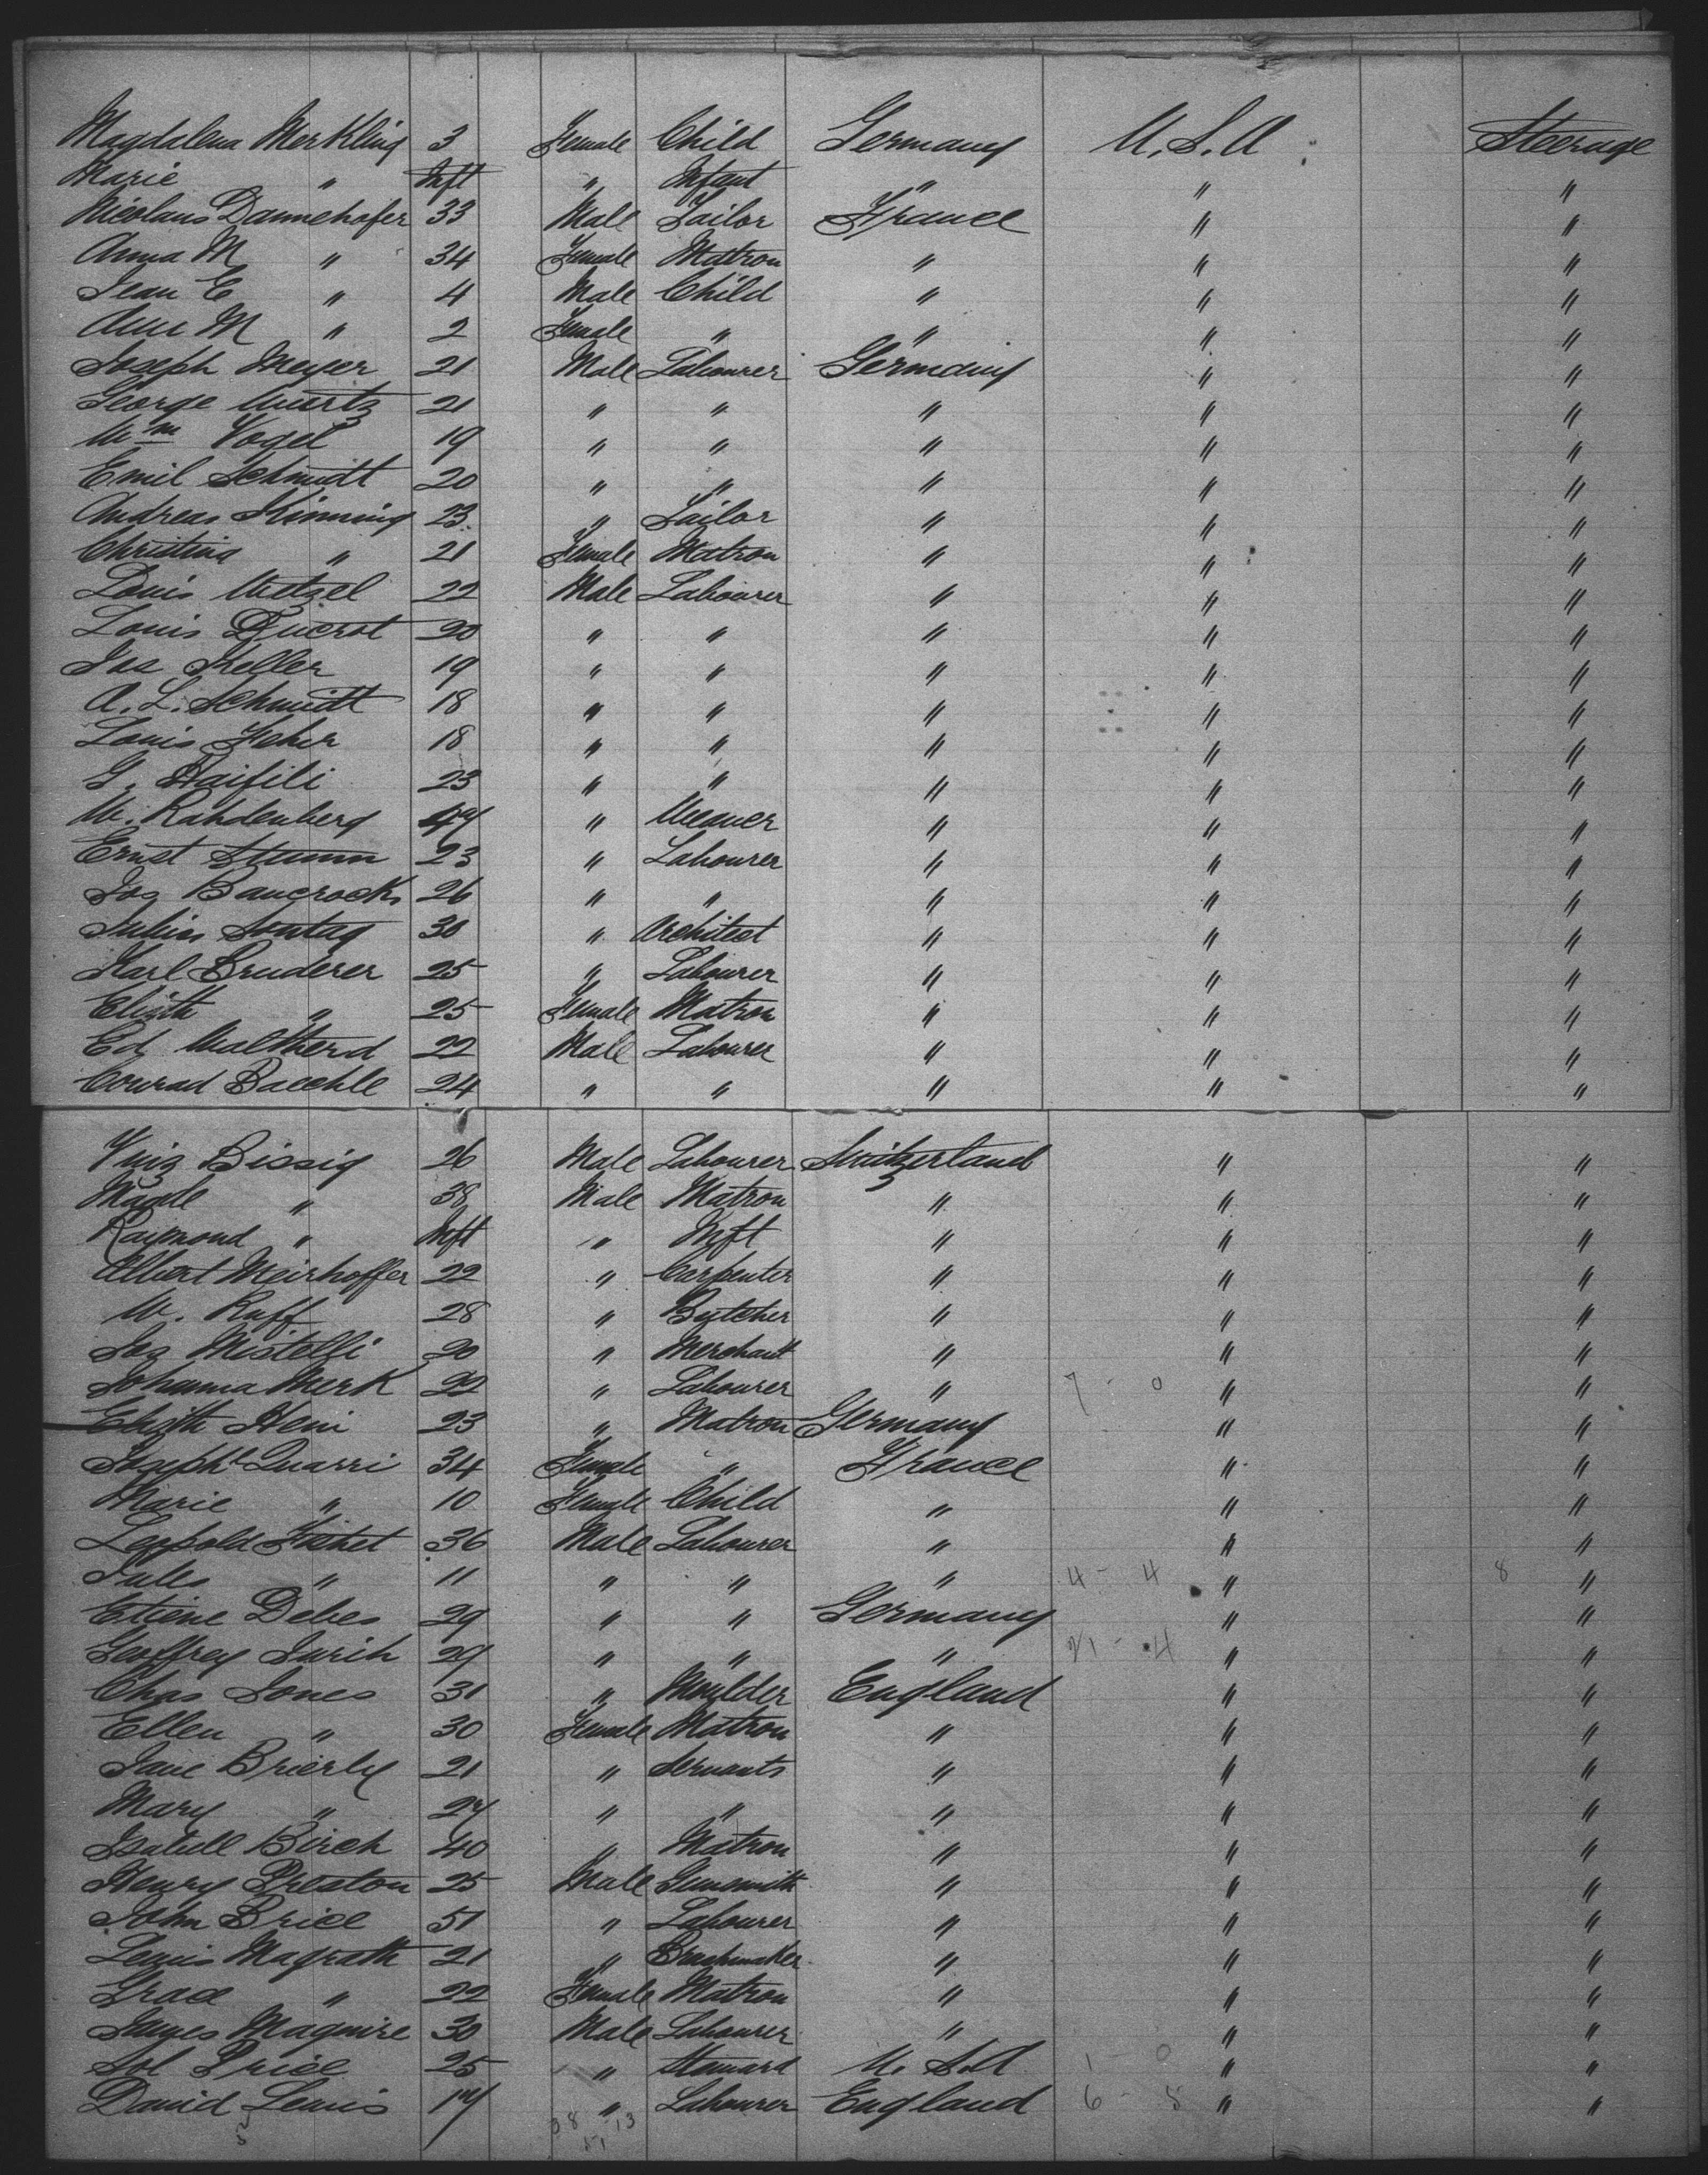 Magdalena Merkling 3 Female Child Germany U.S.A Steerage
Marie " Inft " Infant " " "
Nicolaus Dannehofer 33 Male Tailor France " "
Anna M " 34 Female Matron " " "
Jean E " 4 Male Child " " "
Ann M " 2 Female " " " "
Joseph Meyer 21 Male Labourer Germany " "
George Wurtz 21 " " " " "
Wm Vogel 19 " " " " "
Emil Schmidt 20 " " " " "
Andreas Kinning 23 " Tailor " " "
Christina " 21 Female Matron " " "
Louis Wetzel 22 Male Labourer " " "
Louis Ducrot 20 " " " " "
Jos Keller 19 " " " " "
A. L. Schmidt 18 " " " " "
Louis Fehr 18 " " " " "
G. Haifili 23 " " " " "
W. Rahdenberg 47 " Weaver " " "
Ernst Stumm 23 " Labourer " " "
Jos Bancrock 26 " " " " "
Julius Sontag 30 " Architect " " "
Karl Bruderer 25 " Labourer " " "
Elizth " 25 Female Matron " " "
Ed Waltherd 22 Male Labourer " " "
Conrad Baechle 24 " " " " "
Bissig 26 Male Labourer Switzerland " "
Magde " 38 Male Matron " " "
Raymond " Inft " Inft " " "
Albert Meirhoffer 22 " Carpenter " " "
W. Ruff 28 " Butcher " " "
Jos Mistelli 20 " Merchant " " "
Johanna Merk 22 " Labourer " 7 - 0 " "
Elizth Heni 23 " Matron Germany " "
Josephe Quarri 34 Female " France " "
Marie " 10 Female Child " " "
Leopold Fichet 36 Male Labourer " " "
Jules " 11 " " " 4 - 4 " 8 "
Etiene Debes 29 " " Germany " "
Geoffrey Jurih 29 " " " 21 - 4 " "
Chas Jones 31 " Moulder England " "
Ellen " 30 Female Matron " " "
Jane Brierly 21 " Servants " " "
Mary " 27 " " " " "
Isabell Birch 40 " Matron " " "
Henry Preston 25 Male Gunsmith " " "
John Brice 51 " Labourer " " "
Lewis Magrath 21 " Brushmaker " " "
Grace " 22 Female Matron " " "
James Maguire 30 Male Labourer " " "
Sol Price 25 " Steward U.S.A 1 - 0 " "
David Lewis 17 " Labourer England 6 - 5 " "
38 13
51